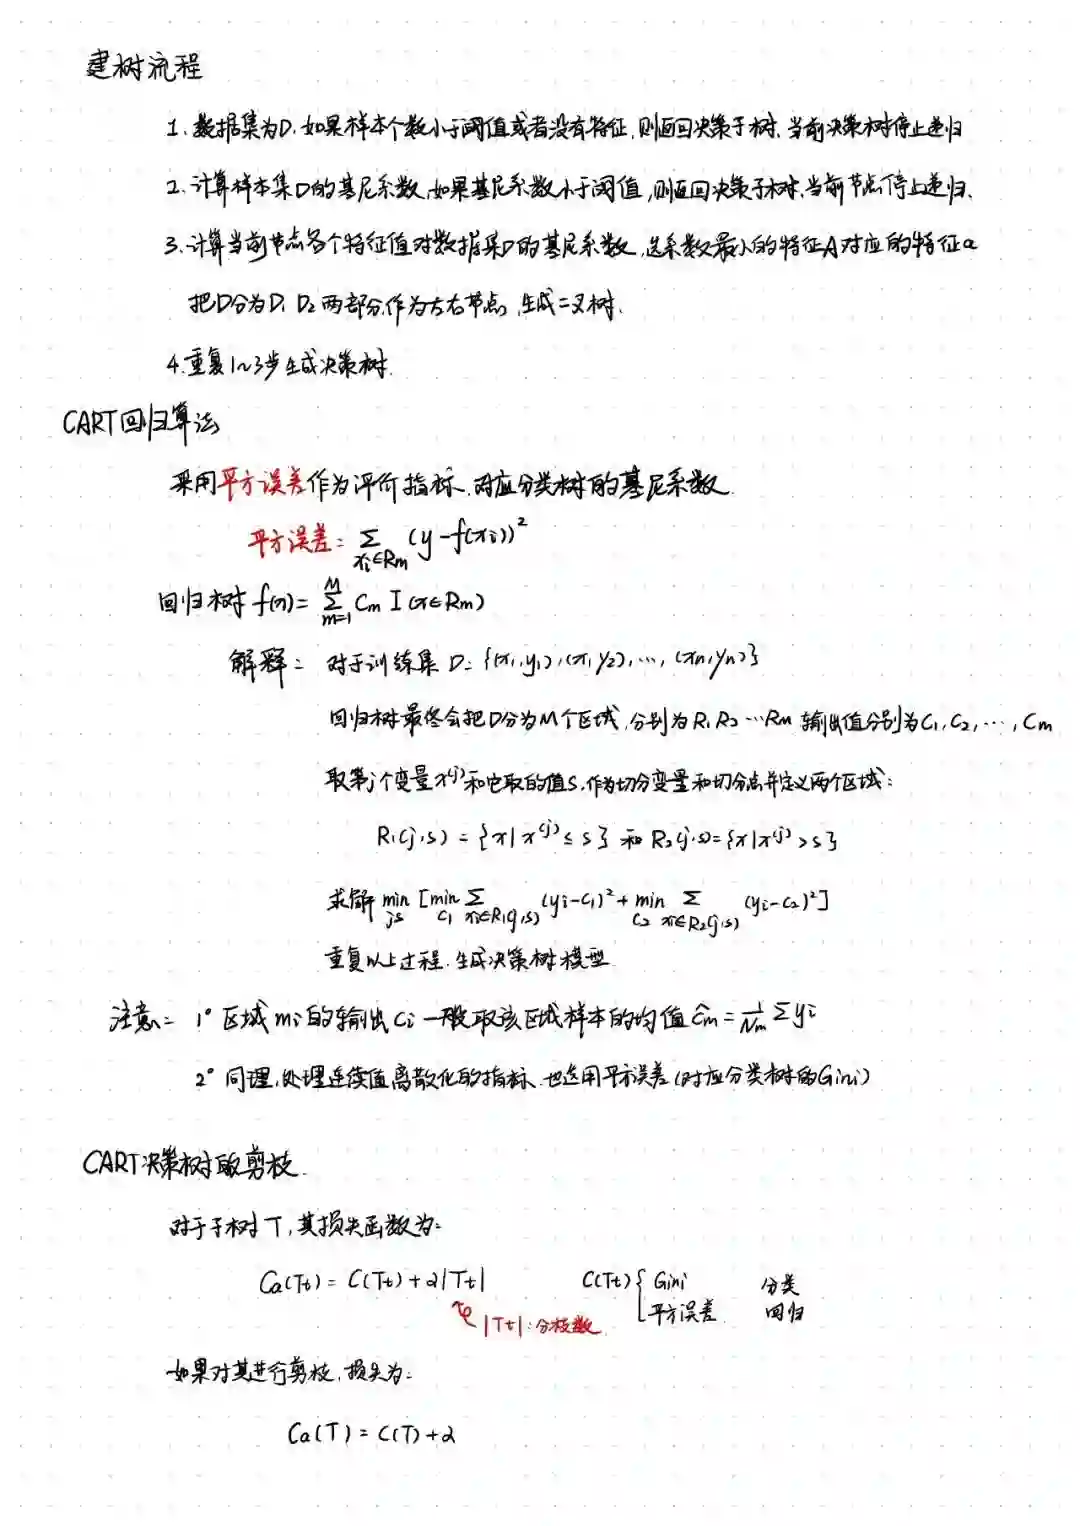 建树流程
1. 数据集为D. 如果样本个数小于阈值或者没有特征, 则返回决策子树. 当前决策树停止递归
2. 计算样本集D的基尼系数, 如果基尼系数小于阈值, 则返回决策子树, 当前节点停止递归.
3. 计算当前节点各个特征值对数据集D的基尼系数, 选系数最小的特征A对应的特征a
把D分为D₁ D₂ 两部分,作为左右节点, 生成二叉树.
4. 重复1~3步生成决策树.
CART回归算法
采用平方误差作为评价指标. 对应分类树的基尼系数.
平方误差: Σ_{xi∈Rm} (y-f(xi))²
回归树 f(x)= Σ_{m=1}^{M} Cm I(x∈Rm)
解释: 对于训练集 D={(x₁,y₁),(x₁,y₂),···,(xn,yn)}
回归树最终会把D分为M个区域, 分别为R₁R₂···Rm 输出值分别为C₁,C₂,···,Cm
取第j个变量x^(j)和它取的值s,作为切分变量和切分点并定义两个区域:
R₁(j,s) = {x|x^(j)≤s} 和 R₂(j,s)={x|x^(j)>s}
求解 min_{js} [min_{C₁} Σ_{xi∈R₁(j,s)} (yi-C₁)² + min_{C₂} Σ_{xi∈R₂(j,s)} (yi-C₂)²]
重复以上过程. 生成决策树模型
注意: 1° 区域mi的输出Ci一般取该区域样本的均值 ĉm = 1/Nm Σyi
2° 同理, 处理连续值离散化的指标. 也选用平方误差(对应分类树的Gini)
CART决策树的剪枝.
对于子树T, 其损失函数为:
Cα(Tt) = C(Tt) + α|Tt| C(Tt) { Gini 分类
平方误差 回归
|Tt|: 分枝数
如果对其进行剪枝, 损失为:
Cα(T) = C(T)+α